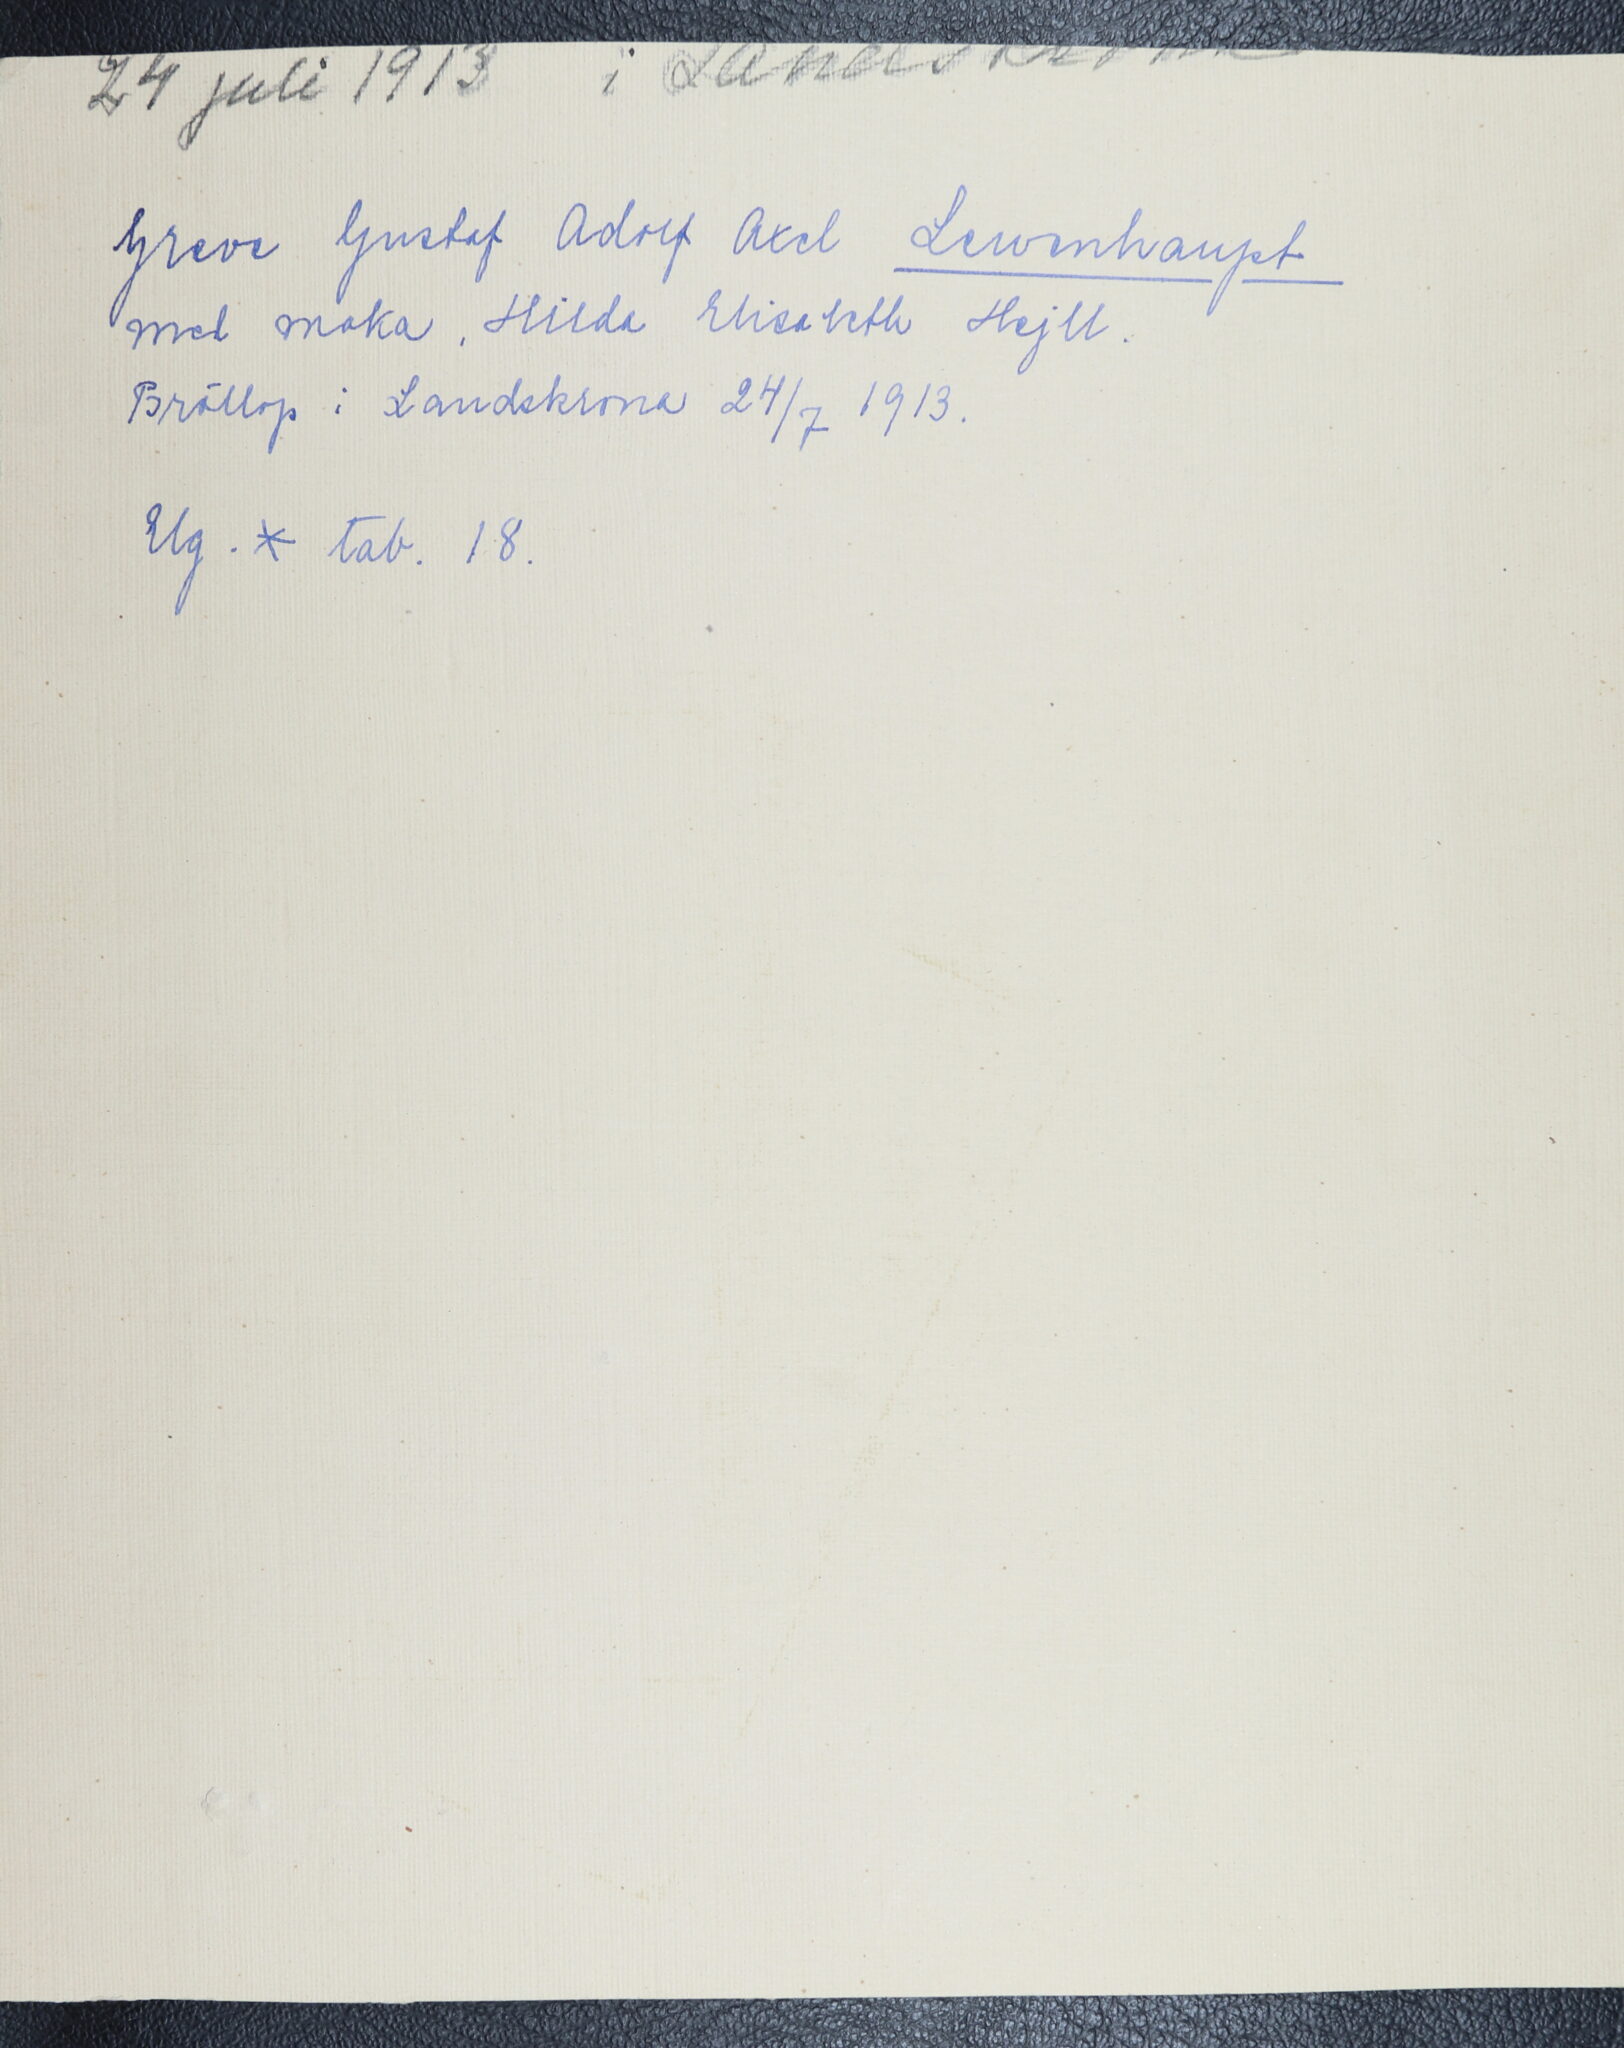 24 juli 1913 i Landskrona
Greve Gustaf Adolf Axel Lewenhaupt
med maka, Hilda Elisabeth Hejll.
Bröllop i Landskrona 24/7 1913.
Elg. * tab. 18.